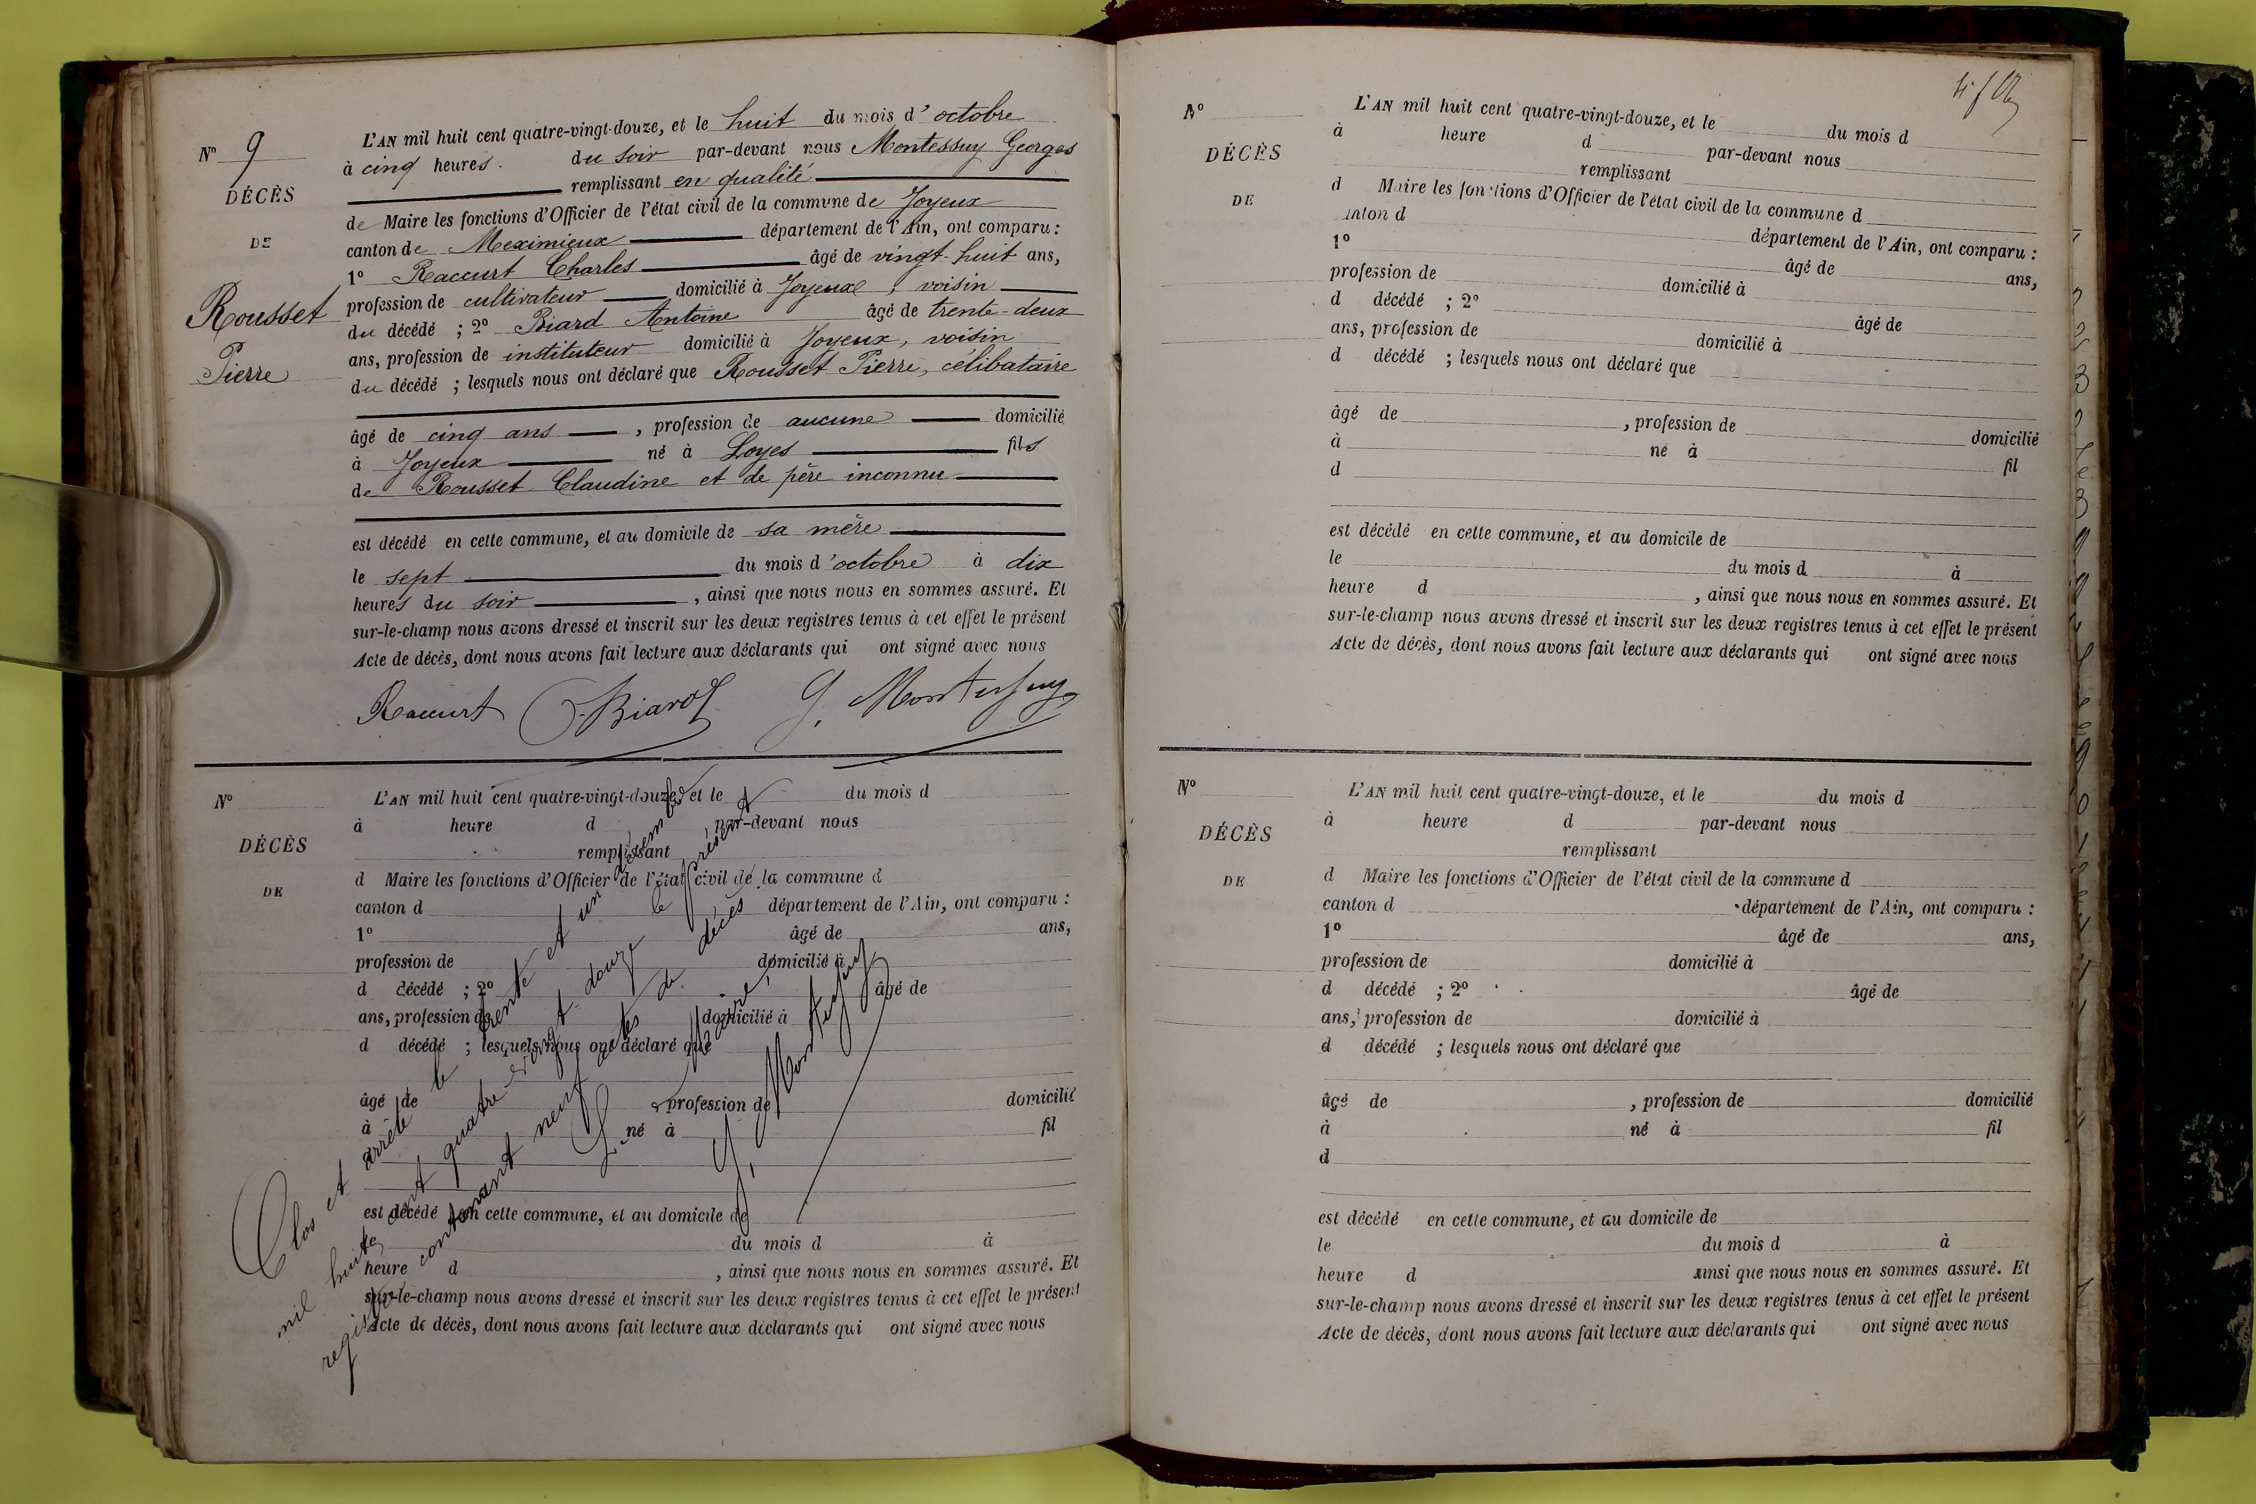 Nº 9
DÉCÈS
DE
Rousset
Pierre
L'AN mil huit cent quatre-vingt-douze, et le huit du mois d'octobre
à cinq heures. du soir par-devant nous Montessuy Georges
remplissant en qualité
de Maire les fonctions d'Officier de l'état civil de la commune de Joyeux
canton de Meximieux département de l'Ain, ont comparu :
1º Raccurt Charles âgé de vingt-huit ans,
profession de cultivateur domicilié à Joyeux, voisin
du décédé ; 2º Biard Antoine âgé de trente-deux
ans, profession de instituteur domicilié à Joyeux, voisin
du décédé ; lesquels nous ont déclaré que Rousset Pierre, célibataire
âgé de cinq ans , profession de aucune domicilié
à Joyeux né à Loyes fils
de Rousset Claudine et de père inconnu
est décédé en cette commune, et au domicile de sa mère
le sept du mois d'octobre à dix
heures du soir , ainsi que nous nous en sommes assuré. Et
sur-le-champ nous avons dressé et inscrit sur les deux registres tenus à cet effet le présent
Acte de décès, dont nous avons fait lecture aux déclarants qui ont signé avec nous
Raccurt Biard G. Montessuy
Nº
DÉCÈS
DE
L'AN mil huit cent quatre-vingt-douze, et le du mois d
à heure d par-devant nous
remplissant
d Maire les fonctions d'Officier de l'état civil de la commune d
canton d département de l'Ain, ont comparu :
1º âgé de ans,
profession de domicilié à
d décédé ; 2º âgé de
ans, profession de domicilié à
d décédé ; lesquels nous ont déclaré que
âgé de , profession de domicilié
à né à fil
d
est décédé en cette commune, et au domicile de
le du mois d à
heure d , ainsi que nous nous en sommes assuré. Et
sur-le-champ nous avons dressé et inscrit sur les deux registres tenus à cet effet le présent
Acte de décès, dont nous avons fait lecture aux déclarants qui ont signé avec nous
Clos et arrêté le trente et un décembre
mil huit cent quatre vingt-douze le présent
registre contenant neuf actes de décès.
Le Maire,
G. Montessuy
Nº
DÉCÈS
DE
L'AN mil huit cent quatre-vingt-douze, et le du mois d
à heure d par-devant nous
remplissant
d Maire les fonctions d'Officier de l'état civil de la commune d
anton d département de l'Ain, ont comparu :
1º âgé de ans,
profession de domicilié à
d décédé ; 2º âgé de
ans, profession de domicilié à
d décédé ; lesquels nous ont déclaré que
âgé de , profession de domicilié
à né à fil
d
est décédé en cette commune, et au domicile de
le du mois d à
heure d , ainsi que nous nous en sommes assuré. Et
sur-le-champ nous avons dressé et inscrit sur les deux registres tenus à cet effet le présent
Acte de décès, dont nous avons fait lecture aux déclarants qui ont signé avec nous
Nº
DÉCÈS
DE
L'AN mil huit cent quatre-vingt-douze, et le du mois d
à heure d par-devant nous
remplissant
d Maire les fonctions d'Officier de l'état civil de la commune d
canton d département de l'Ain, ont comparu :
1º âgé de ans,
profession de domicilié à
d décédé ; 2º âgé de
ans, profession de domicilié à
d décédé ; lesquels nous ont déclaré que
âgé de , profession de domicilié
à né à fil
d
est décédé en cette commune, et au domicile de
le du mois d à
heure d ainsi que nous nous en sommes assuré. Et
sur-le-champ nous avons dressé et inscrit sur les deux registres tenus à cet effet le présent
Acte de décès, dont nous avons fait lecture aux déclarants qui ont signé avec nous